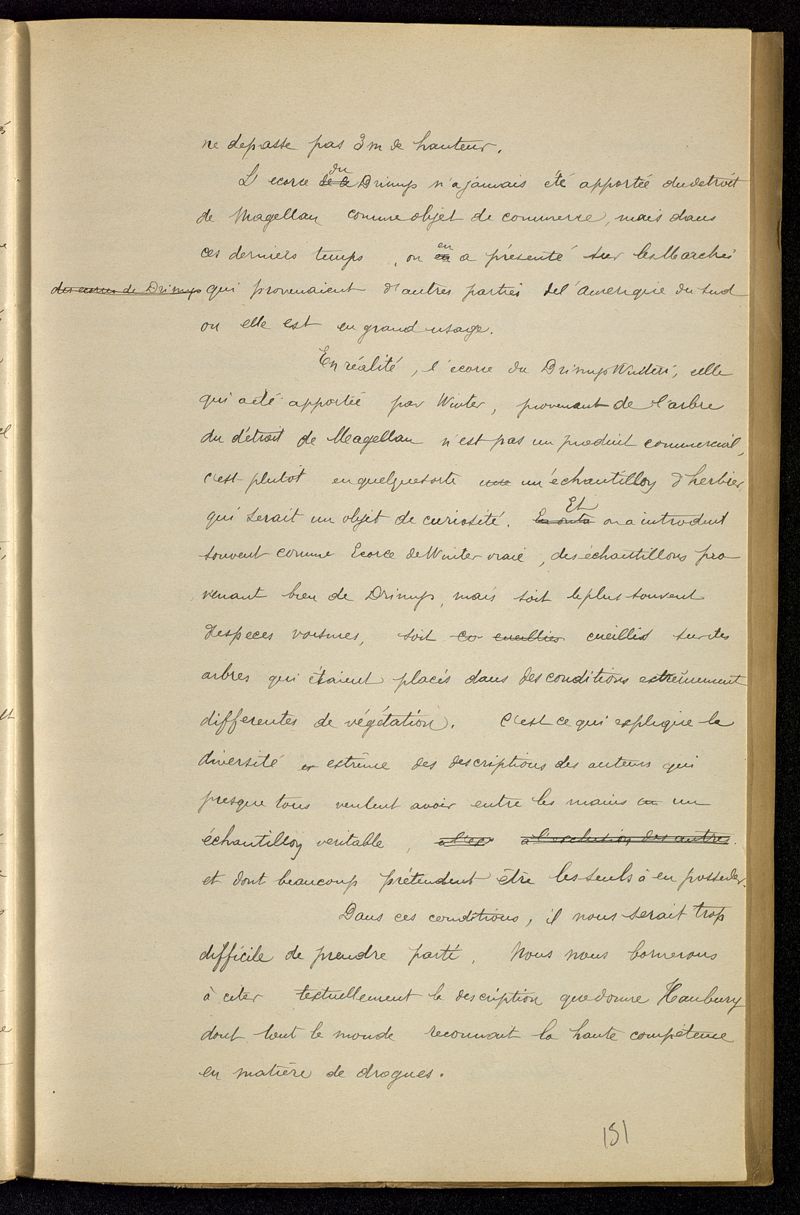 ne depasse pas 3m de hauteur.
L'ecorce de le du Drimys n'a jamais été apportée du detroit
de Magellan comme objet de commerce, mais dans
ces derniers temps, on en a présenté sur les Marchés
des ecorces de Drimys qui provenaient d'autres parties de l'Amerique du Sud
ou elle est en grand usage.
En réalité, l'écorce du Drimys Winteri, celle
qui a été apportée par Winter, provenant de l'arbre
du détroit de Magellan n'est pas un produit commercial,
c'est plutôt en quelque sorte une un échantillon d'herbier
qui serait un objet de curiosité. Et on a introduit
souvent comme Ecorce de Winter vraie, des échantillons pro
venant bien de Drimys, mais soit le plus souvent
d'especes voisines, soit co cueillies cueillis sur des
arbres qui étaient placés dans des conditions extrêmement
differentes de végétation. C'est ce qui explique la
diversité ex extrême des descriptions des auteurs qui
presque tous veulent avoir entre les mains un un
échantillon veritable, à l'ex à l'exclusion des autres.
et dont beaucoup prétendent être les seuls à en posseder.
Dans ces conditions, il nous serait trop
difficile de prendre parti. Nous nous bornerons
à citer textuellement la description que donne Hanbury
dont tout le monde reconnait la haute compétence
en matière de drogues.
151